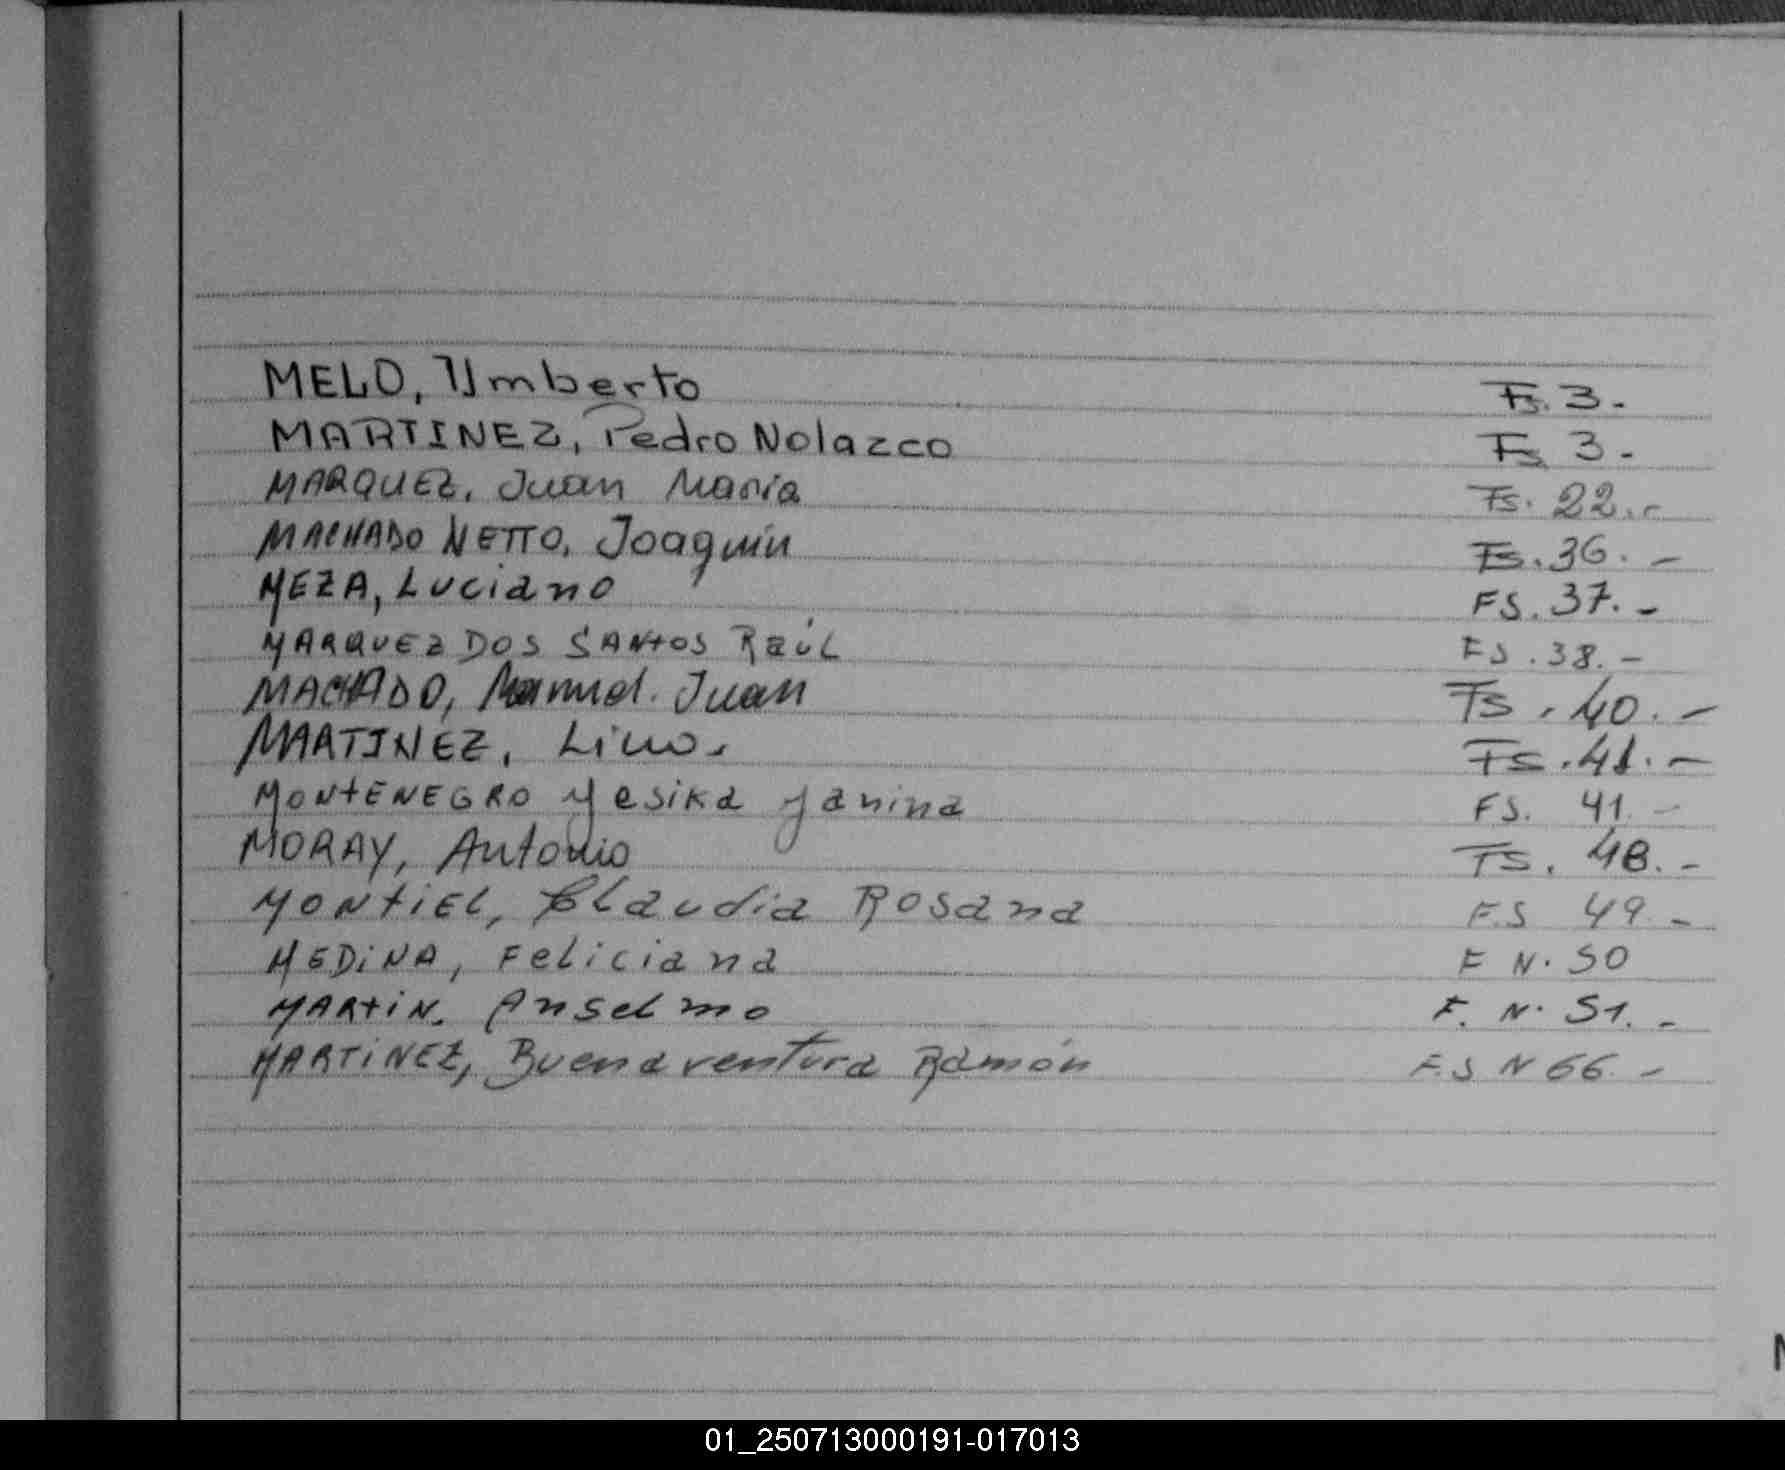 MELO, Umberto Fs. 3.-
MARTINEZ, Pedro Nolazco Fs 3.-
MARQUEZ, Juan Maria Fs. 22.-
MACHADO NETTO, Joaquin Fs. 36.-
MEZA, Luciano FS. 37.-
MARQUEZ DOS SANtOS Raúl FS. 38.-
MACHADO, Manuel Juan FS. 40.-
MARTINEZ, Lino. FS. 41.-
MONtENEGRO Yesika Yanina FS. 41.-
MORAY, Antonio FS. 48.-
MONtiEL, Claudia Rosana F.S 49.-
MEDiNA, Feliciana F N. 50
MARtiN. Anselmo F. N. 51.-
MARTiNEZ, Buenaventura Ramón F.S N 66.-
01_250713000191-017013